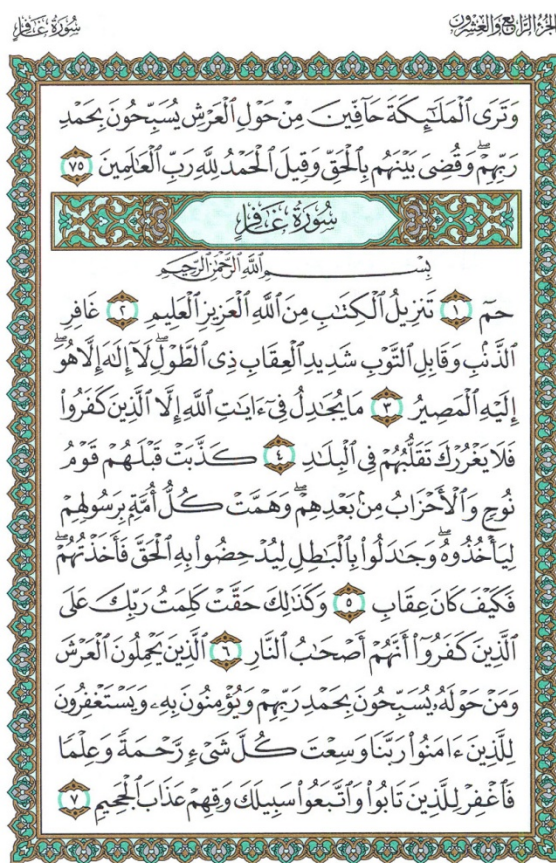 سُورَةُ غَافِرٍ
الجُزْءُ الرَّابِعُ وَالعِشْرُونَ
وَتَرَى ٱلْمَلَٰٓئِكَةَ حَآفِّينَ مِنْ حَوْلِ ٱلْعَرْشِ يُسَبِّحُونَ بِحَمْدِ
رَبِّهِمْۖ وَقُضِىَ بَيْنَهُم بِٱلْحَقِّ وَقِيلَ ٱلْحَمْدُ لِلَّهِ رَبِّ ٱلْعَٰلَمِينَ ٧٥
سُورَةُ غَافِرٍ
بِسْمِ ٱللَّهِ ٱلرَّحْمَٰنِ ٱلرَّحِيمِ
حمٓ ١ تَنزِيلُ ٱلْكِتَٰبِ مِنَ ٱللَّهِ ٱلْعَزِيزِ ٱلْعَلِيمِ ٢ غَافِرِ
ٱلذَّنۢبِ وَقَابِلِ ٱلتَّوْبِ شَدِيدِ ٱلْعِقَابِ ذِى ٱلطَّوْلِۖ لَآ إِلَٰهَ إِلَّا هُوَۖ
إِلَيْهِ ٱلْمَصِيرُ ٣ مَا يُجَٰدِلُ فِىٓ ءَايَٰتِ ٱللَّهِ إِلَّا ٱلَّذِينَ كَفَرُوا۟
فَلَا يَغْرُرْكَ تَقَلُّبُهُمْ فِى ٱلْبِلَٰدِ ٤ كَذَّبَتْ قَبْلَهُمْ قَوْمُ
نُوحٍ وَٱلْأَحْزَابُ مِنۢ بَعْدِهِمْۖ وَهَمَّتْ كُلُّ أُمَّةٍۭ بِرَسُولِهِمْ
لِيَأْخُذُوهُۖ وَجَٰدَلُوا۟ بِٱلْبَٰطِلِ لِيُدْحِضُوا۟ بِهِ ٱلْحَقَّ فَأَخَذْتُهُمْۖ
فَكَيْفَ كَانَ عِقَابِ ٥ وَكَذَٰلِكَ حَقَّتْ كَلِمَتُ رَبِّكَ عَلَى
ٱلَّذِينَ كَفَرُوٓا۟ أَنَّهُمْ أَصْحَٰبُ ٱلنَّارِ ٦ ٱلَّذِينَ يَحْمِلُونَ ٱلْعَرْشَ
وَمَنْ حَوْلَهُۥ يُسَبِّحُونَ بِحَمْدِ رَبِّهِمْ وَيُؤْمِنُونَ بِهِۦ وَيَسْتَغْفِرُونَ
لِلَّذِينَ ءَامَنُوا۟ رَبَّنَا وَسِعْتَ كُلَّ شَىْءٍ رَّحْمَةً وَعِلْمًا
فَٱغْفِرْ لِلَّذِينَ تَابُوا۟ وَٱتَّبَعُوا۟ سَبِيلَكَ وَقِهِمْ عَذَابَ ٱلْجَحِيمِ ٧